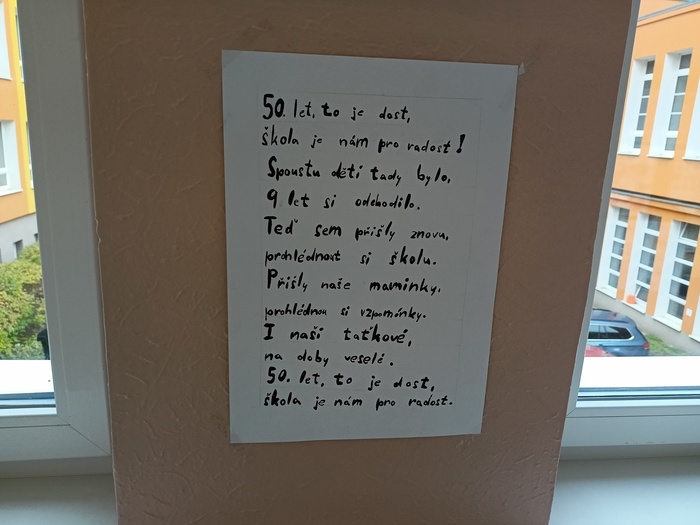 50. let, to je dost,
škola je nám pro radost!
Spoustu dětí tady bylo,
9 let si odchodilo.
Teď sem přišly znovu,
prohlédnout si školu.
Přišly naše maminky,
prohlédnou si vzpomínky.
I naši taťkové,
na doby veselé.
50. let, to je dost,
škola je nám pro radost.